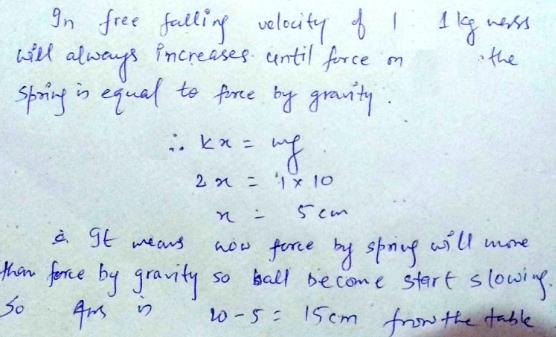 In free falling velocity of 1 1 kg mass
will always increases until force on the
spring is equal to force by gravity.
∴ kx = mg
2x = 1 x 10
x = 5 cm
It means now force by spring will more
than force by gravity so ball become start slowing.
So Ans is 20 - 5 = 15cm from the table